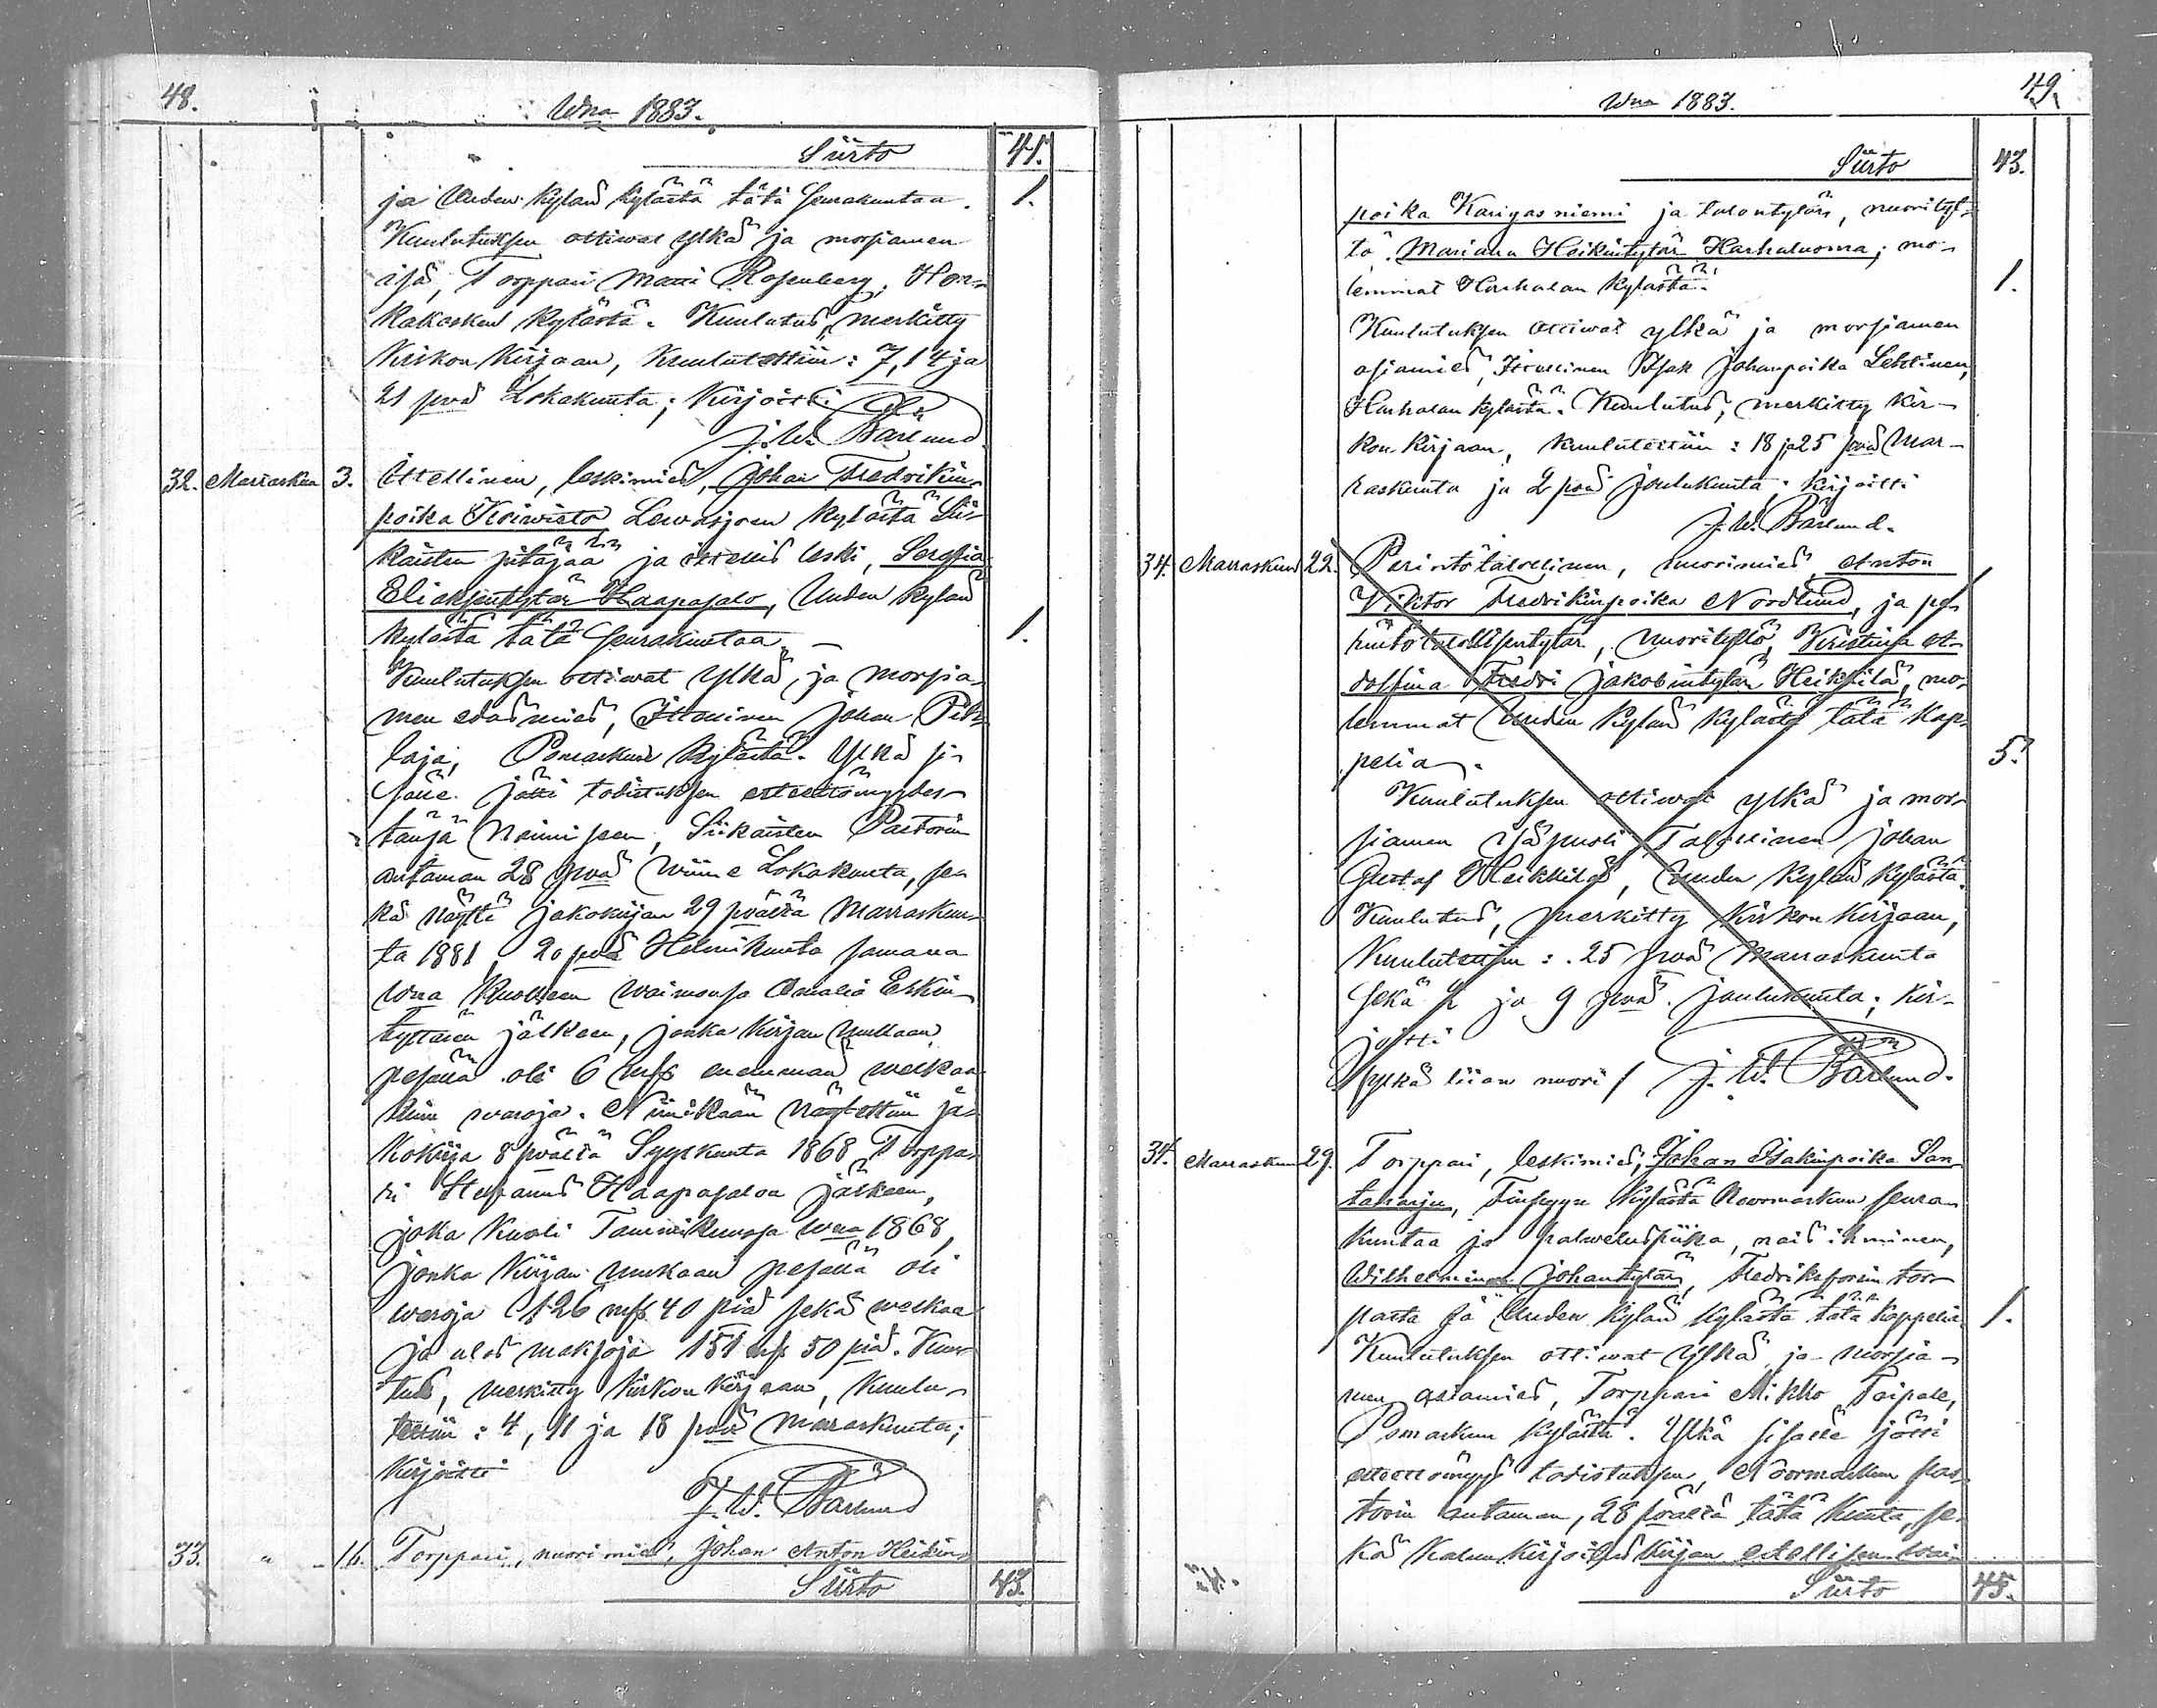 48.
Wna 1883.
Siirto 41.
ja Uuden kylän kylästä tätä seurakuntaa. 1.
Kuulutuksen ottiwat ylkä ja morsiamen
isä, Torppari Matti Rosenberg, Hon-
kakosken kylästä. Kuulutus, merkitty
Kirkon kirjaan, kuulutettiin: 7, 14 ja
21 pvä Lokakuuta; Kirjoitti
J. W. Bärlund.
32. Marraskuu 3. Itsellinen, leskimies, Johan Fredrikin-
poika Koiwisto Lewäsjoen kylästä Sii-
kaisten pitäjää ja itsellis leski, Serafia
Eliaksentytär Haapasalo, Uuden kylän
kylästä tätä seurakuntaa. 1.
Kuulutuksen ottiwat ylkä, ja morsia-
men edusmies, Itsellinen Johan
Pomarkun kylästä. Ylkä si-
sälle jätti todistuksen esteettömyydes-
tänsä naimiseen, Siikaisten Pastorin
antaman 28 pvä wiime Lokakuuta, se-
kä näytti jakokirjan 29 pvältä Marraskuu-
ta 1881, 20 pvä Helmikuuta samana
wna kuolleen waimonsa Amalia Eskin-
tyttären jälkeen, jonka kirjan mukaan
pesällä oli 6 mkk enemmän welkaa
kuin waroja. Niinikään näytettiin ja-
kokirja 8 pvältä Syyskuuta 1868 Torppa-
ri Stefanus Haapasalon jälkeen,
joka kuoli Tammikuussa wna 1868,
jonka kirjan mukaan pesällä oli
waroja 126 mk 40 piä sekä welkaa
ja ulos maksoja 151 mk 50 piä. Kuulu-
tus, merkitty kirkon kirjaan, kuulu-
tettiin: 4, 11 ja 18 pvä Marraskuuta;
Kirjoitti
J. W. Bärlund
33. " 16. Torppari, nuorimies, Johan Anton Heikin-
Siirto 43.
49.
Wna 1883.
Siirto 43.
poika Karigasniemi ja talontytär, nuorityt-
tö Mariana Heikintytär Harhaluoma; mo-
lemmat Harhalan kylästä. 1.
Kuulutuksen ottiwat ylkä ja morsiamen
asiamies, Itsellinen Isak Johanpoika Lehtinen,
Harhalan kylästä. Kuulutus, merkitty kir-
kon kirjaan, kuulutettiin: 18 ja 25 pvä Mar-
raskuuta ja 2 pvä Joulukuuta; Kirjoitti
J. W. Bärlund.
34. Marraskuu 22. Perintötalollinen, nuorimies Anton
Viktor Fredrikinpoika Nordlund, ja pe-
rintötalollisentytär, nuorityttö, Kristiina A-
dolfina Fredri Jakobintytär Heikkilä, mo-
lemmat Uuden kylän kylästä tätä Kap-
pelia. 5.
Kuulutuksen ottiwat ylkä ja mor-
siamen isäpuoli Talollinen Johan
Gustaf Heikkilä, Uuden kylän kylästä.
Kuulutus, merkitty kirkon kirjaan,
Kuulutettiin: 25 pvä Marraskuuta
sekä 2 ja 9 pvä Joulukuuta; Kir-
joitti
/ylkä liian nuori/ J. W. Bärlund.
34. Marraskuu 29. Torppari, leskimies, Johan Isakinpoika San-
taharju, Finpyyn kylästä Noormarkun seura-
kuntaa ja palweluspiika, nais ihminen,
Wilhelmina Johantytär, Fredriksforsin tor-
pasta ja Uuden kylän kylästä tätä kappelia. 1.
Kuulutuksen ottiwat ylkä ja morsia-
men asiamies, Torppari Mikko Taipale,
Pomarkun kylästä. Ylkä sisälle jätti
esteettömyys todistuksen, Noormarkun pas-
torin antaman, 28 pvältä tätä kuuta, se-
kä kalun kirjoitus kirjan edellisen wai-
Siirto 45.